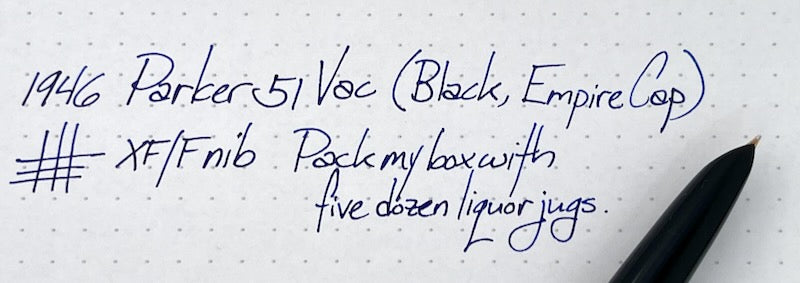 1946 Parker 51 Vac (Black, Empire Cap)
XF/F nib Pack my box with
five dozen liquor jugs.